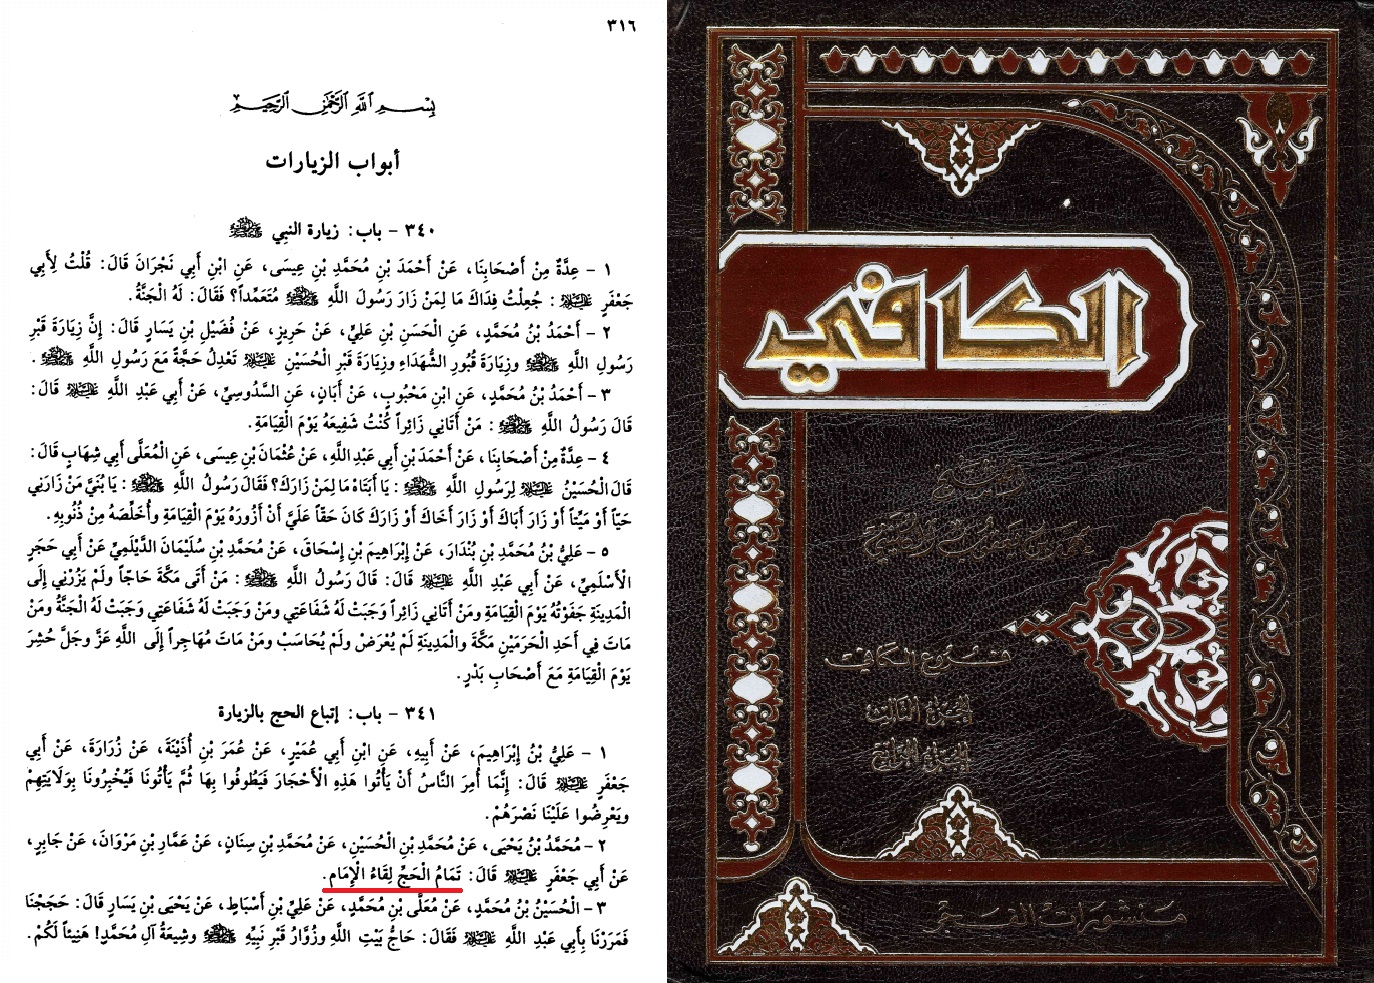 ٣١٦
بِسْمِ اللَّهِ الرَّحْمَنِ الرَّحِيمِ
أبواب الزيارات
٣٤٠ - باب: زيارة النبي ﷺ
١ - عِدَّةٌ مِنْ أَصْحَابِنَا، عَنْ أَحْمَدَ بْنِ مُحَمَّدِ بْنِ عِيسَى، عَنِ ابْنِ أَبِي نَجْرَانَ قَالَ: قُلْتُ لِأَبِي
جَعْفَرٍ عَلَيْهِ السَّلَام: جُعِلْتُ فِدَاكَ مَا لِمَنْ زَارَ رَسُولَ اللَّهِ ﷺ مُتَعَمِّداً؟ فَقَالَ: لَهُ الْجَنَّةُ.
٢ - أَحْمَدُ بْنُ مُحَمَّدٍ، عَنِ الْحَسَنِ بْنِ عَلِيٍّ، عَنْ حَرِيزٍ، عَنْ فُضَيْلِ بْنِ يَسَارٍ قَالَ: إِنَّ زِيَارَةَ قَبْرِ
رَسُولِ اللَّهِ ﷺ وزِيَارَةَ قُبُورِ الشُّهَدَاءِ وزِيَارَةَ قَبْرِ الْحُسَيْنِ عَلَيْهِ السَّلَام تَعْدِلُ حَجَّةً مَعَ رَسُولِ اللَّهِ ﷺ.
٣ - أَحْمَدُ بْنُ مُحَمَّدٍ، عَنِ ابْنِ مَحْبُوبٍ، عَنْ أَبَانٍ، عَنِ السَّدُوسِيِّ، عَنْ أَبِي عَبْدِ اللَّهِ عَلَيْهِ السَّلَام قَالَ:
قَالَ رَسُولُ اللَّهِ ﷺ: مَنْ أَتَانِي زَائِراً كُنْتُ شَفِيعَهُ يَوْمَ الْقِيَامَةِ.
٤ - عِدَّةٌ مِنْ أَصْحَابِنَا، عَنْ أَحْمَدَ بْنِ أَبِي عَبْدِ اللَّهِ، عَنْ عُثْمَانَ بْنِ عِيسَى، عَنِ الْمُعَلَّى أَبِي شِهَابٍ قَالَ:
قَالَ الْحُسَيْنُ عَلَيْهِ السَّلَام لِرَسُولِ اللَّهِ ﷺ: يَا أَبَتَاهُ مَا لِمَنْ زَارَكَ؟ فَقَالَ رَسُولُ اللَّهِ ﷺ: يَا بُنَيَّ مَنْ زَارَنِي
حَيّاً أَوْ مَيِّتاً أَوْ زَارَ أَبَاكَ أَوْ زَارَ أَخَاكَ أَوْ زَارَكَ كَانَ حَقّاً عَلَيَّ أَنْ أَزُورَهُ يَوْمَ الْقِيَامَةِ وأُخَلِّصَهُ مِنْ ذُنُوبِهِ.
٥ - عَلِيُّ بْنُ مُحَمَّدِ بْنِ بُنْدَارَ، عَنْ إِبْرَاهِيمَ بْنِ إِسْحَاقَ، عَنْ مُحَمَّدِ بْنِ سُلَيْمَانَ الدَّيْلَمِيِّ عَنْ أَبِي حَجَرٍ
الْأَسْلَمِيِّ، عَنْ أَبِي عَبْدِ اللَّهِ عَلَيْهِ السَّلَام قَالَ: قَالَ رَسُولُ اللَّهِ ﷺ: مَنْ أَتَى مَكَّةَ حَاجّاً ولَمْ يَزُرْنِي إِلَى
الْمَدِينَةِ جَفَوْتُهُ يَوْمَ الْقِيَامَةِ ومَنْ أَتَانِي زَائِراً وَجَبَتْ لَهُ شَفَاعَتِي ومَنْ وَجَبَتْ لَهُ شَفَاعَتِي وَجَبَتْ لَهُ الْجَنَّةُ ومَنْ
مَاتَ فِي أَحَدِ الْحَرَمَيْنِ مَكَّةَ والْمَدِينَةِ لَمْ يُعْرَضْ ولَمْ يُحَاسَبْ ومَنْ مَاتَ مُهَاجِراً إِلَى اللَّهِ عَزَّ وجَلَّ حُشِرَ
يَوْمَ الْقِيَامَةِ مَعَ أَصْحَابِ بَدْرٍ.
٣٤١ - باب: إتباع الحج بالزيارة
١ - عَلِيُّ بْنُ إِبْرَاهِيمَ، عَنْ أَبِيهِ، عَنِ ابْنِ أَبِي عُمَيْرٍ، عَنْ عُمَرَ بْنِ أُذَيْنَةَ، عَنْ زُرَارَةَ، عَنْ أَبِي
جَعْفَرٍ عَلَيْهِ السَّلَام قَالَ: إِنَّمَا أُمِرَ النَّاسُ أَنْ يَأْتُوا هَذِهِ الْأَحْجَارَ فَيَطُوفُوا بِهَا ثُمَّ يَأْتُونَا فَيُخْبِرُونَا بِوَلَايَتِهِمْ
ويَعْرِضُوا عَلَيْنَا نَصْرَهُمْ.
٢ - مُحَمَّدُ بْنُ يَحْيَى، عَنْ مُحَمَّدِ بْنِ الْحُسَيْنِ، عَنْ مُحَمَّدِ بْنِ سِنَانٍ، عَنْ عَمَّارِ بْنِ مَرْوَانَ، عَنْ جَابِرٍ،
عَنْ أَبِي جَعْفَرٍ عَلَيْهِ السَّلَام قَالَ: تَمَامُ الْحَجِّ لِقَاءُ الْإِمَامِ.
٣ - الْحُسَيْنُ بْنُ مُحَمَّدٍ، عَنْ مُعَلَّى بْنِ مُحَمَّدٍ، عَنْ عَلِيِّ بْنِ أَسْبَاطٍ، عَنْ يَحْيَى بْنِ يَسَارٍ قَالَ: حَجَجْنَا
فَمَرَرْنَا بِأَبِي عَبْدِ اللَّهِ عَلَيْهِ السَّلَام فَقَالَ: حَاجُّ بَيْتِ اللَّهِ وزُوَّارُ قَبْرِ نَبِيِّهِ ﷺ وشِيعَةُ آلِ مُحَمَّدٍ! هَنِيئاً لَكُمْ.
الكافي
فروع الكافي
الجزء الثالث
الجزء الرابع
منشورات الفجر